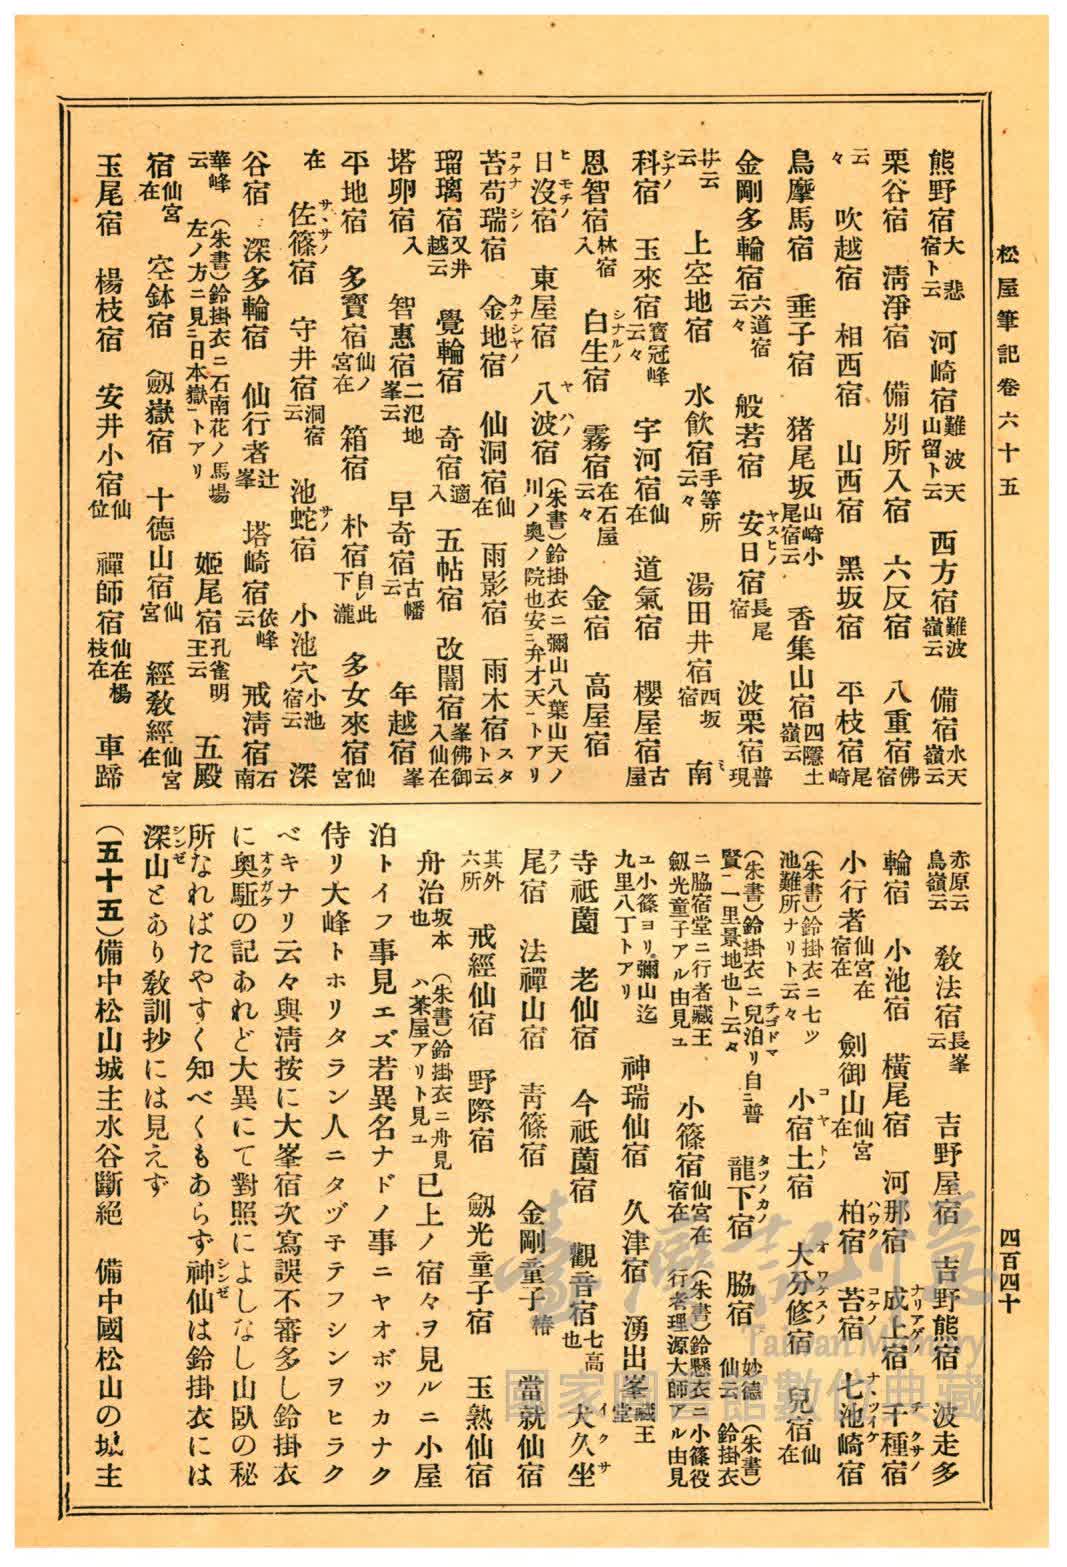 松屋筆記卷六十五
四百四十
熊野宿大悲宿ト云 河崎宿難波天山留ト云 西方宿難波嶺云 備宿水天嶺云
栗谷宿 清淨宿 備別所入宿 六反宿 八重宿佛宿
云々 吹越宿 相西宿 山西宿 黑坂宿 平枝宿尾崎
鳥摩馬宿 垂子宿 猪尾坂山崎小尾宿云 香集山宿四隱土嶺云
金剛多輪宿六道宿云々 般若宿 安日宿ヤスヒノ長尾宿 波栗宿普現
廿云云 上空地宿 水飲宿手等所云々 湯田井宿西坂宿 南
科宿シナノ 玉來宿寶冠峰云々 宇河宿仙在 道氣宿 櫻屋宿古屋
恩智宿林宿入 白生宿シナルノ 霧宿在石屋云々 金宿 高屋宿
日沒宿ヒモチノ 東屋宿 八波宿ヤハノ(朱書)鈴掛衣ニ彌山八葉山天ノ川ノ奥ノ院也安ニ弁才天ートアリ
苔苟瑞宿コケナシノ 金地宿カナシヤノ 仙洞宿仙在 雨影宿 雨木宿スタト云
瑠璃宿又井越云 覺輪宿 奇宿適入 五帖宿 改闇宿峯佛御入仙在
塔卵宿入 智惠宿二氾地峯云 早奇宿古幡云 年越宿峯
平地宿 多寶宿仙ノ宮在 箱宿 朴宿自レ此下瀧 多女來宿仙宮
在 佐篠宿サヽサノ 守井宿洞宿云 池蛇宿サノ 小池穴小池宿云 深
谷宿 深多輪宿 仙行者辻峯 塔崎宿依峰云 戒淸宿石南
華峰云 (朱書)鈴掛衣ニ石南花ノ馬場左ノ方ニ見ニ日本嶽ートアリ 姬尾宿孔雀明王云 五殿
宿仙宮在 空鉢宿 劔嶽宿 十德山宿仙宮 經敎經仙宮在
玉尾宿 楊枝宿 安井小宿仙位 禪師宿仙在楊枝在 車蹄
赤原云鳥嶺云 敎法宿長峯云 吉野屋宿 吉野熊宿 波走多
輪宿 小池宿 橫尾宿 河那宿 成上宿ナリアゲノ 千種宿チクサノ
小行者仙宮在宿在 劍御山仙宮在 柏宿ハウク 苔宿コケノ 七池崎宿ナヽツイケ
(朱書)鈴掛衣ニ七ツ池難所ナリト云々 小宿土宿コヤトノ 大分修宿オワケスノ 兒宿仙在
(朱書)鈴掛衣ニ兒泊リチゴドマ自ニ普賢ニ一里景地也ト云々 龍下宿タツノカノ 脇宿妙德仙云 (朱書)鈴掛衣
ニ脇宿堂ニ行者藏王劔光童子アル由見ユ 小篠宿仙宮在宿在 (朱書)鈴懸衣ニ小篠役行者理源大師アル由見
ユ小篠ヨリ彌山迄九里八丁トアリ 神瑞仙宿 久津宿 湧出峯藏王堂
寺祗薗 老仙宿 今祗薗宿 觀音宿七高也 大久坐イクサ
尾宿ヲノ 法禪山宿 靑篠宿 金剛童子椿 當就仙宿
其外六所 戒經仙宿 野際宿 劔光童子宿 玉熟仙宿
舟治坂本也 (朱書)鈴掛衣ニ舟見ハ茶屋アリト見ユ 已上ノ宿々ヲ見ルニ小屋
泊トイフ事見エズ若異名ナドノ事ニヤオボツカナク
侍リ大峰トホリタラン人ニタヅ子テフシンヲヒラク
ベキナリ云々與淸按に大峯宿次寫誤不審多し鈴掛衣
に奥駈オクガケの記あれど大異にて對照によしなし山臥の秘
所なればたやすく知べくもあらず神仙シンゼは鈴掛衣には
深山シンゼとあり敎訓抄には見えず
(五十五)備中松山城主水谷斷絕 備中國松山の城主